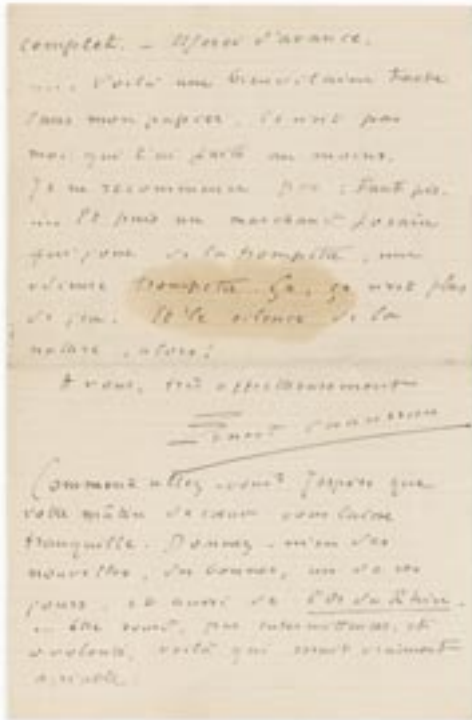 complet. — Merci d'avance.
.... Voilà une bien vilaine tache
dans mon papier. Ce n'est pas
moi qui l'ai faite au moins.
Je ne recommence pas ; tant pis.
... Et puis un marchand forain
qui joue de la trompette, une
trompette. Ça, ça n'est plus
de jeu. Et le silence de la
nature, alors!
A vous, très affectueusement
Ernest Chausson
Comment allez-vous? J'espère que
votre mâtin de cœur vous laisse
tranquille. Donnez-m'en des
nouvelles, de bonnes, un de ces
jours. et aussi de l'Or du Rhin.
par intermittences, et
voilà qui serait vraiment